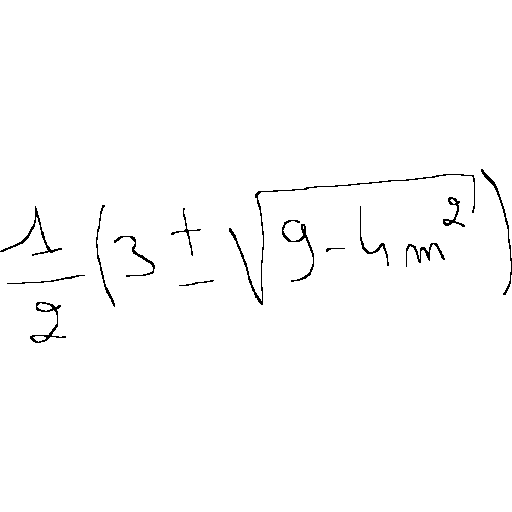 \frac{1}{2}(3 \pm \sqrt{9-4m^2})